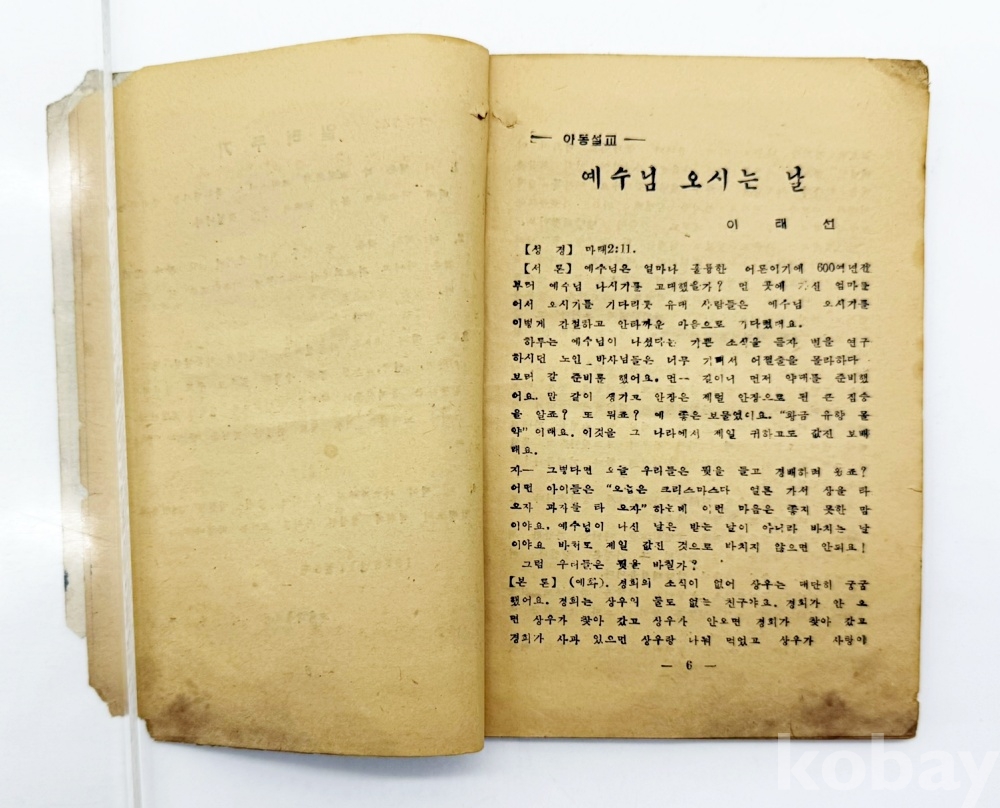 — 아동설교 —
예수님 오시는 날
이 태 선
【성 경】 마태2:11.
【서 론】 예수님은 얼마나 훌륭한 어른이기에 600여년전
부터 예수님 나시기를 고대했을가? 먼 곳에 가신 엄마를
어서 오시기를 기다리듯 유대 사람들은 예수님 오시기를
이렇게 간절하고 안타까운 마음으로 기다렸대요.
하루는 예수님이 나셨다는 기쁜 소식을 듣자 별을 연구
하시던 노인 박사님들은 너무 기뻐서 어쩔줄을 몰라하다
보며 갈 준비를 했어요. 먼— 길이니 먼저 약대를 준비했
어요. 말 같이 생기고 안장은 제절 안장으로 된 큰 짐승
을 알죠? 또 뭐죠? 예 좋은 보물였어요. “황금 유향 몰
약” 이래요. 이것을 그 나라에서 제일 귀하고도 값진 보배
래요.
자— 그렇다면 오늘 우리들은 뭣을 들고 경배하려 왔죠?
어떤 아이들은 “오늘은 크리스마스다 얼른 가서 상을 타
오자 과자를 타 오자” 하는데 이런 마음은 좋지 못한 맘
이야요. 예수님이 나신 날은 받는 날이 아니라 바치는 날
이야요 바쳐도 제일 값진 것으로 바치지 않으면 안되요!
그럼 우리들은 뭣을 바칠가?
【본 론】 (예화). 경희의 소식이 없어 상우는 대단히 궁굼
했어요. 경희는 상우의 둘도 없는 친구야요. 경희가 안 오
면 상우가 찾아 갔고 상우가 안오면 경희가 찾아 갔고
경희가 사과 있으면 상우랑 나눠 먹었고 상우가 사랑이
— 6 —
kobay